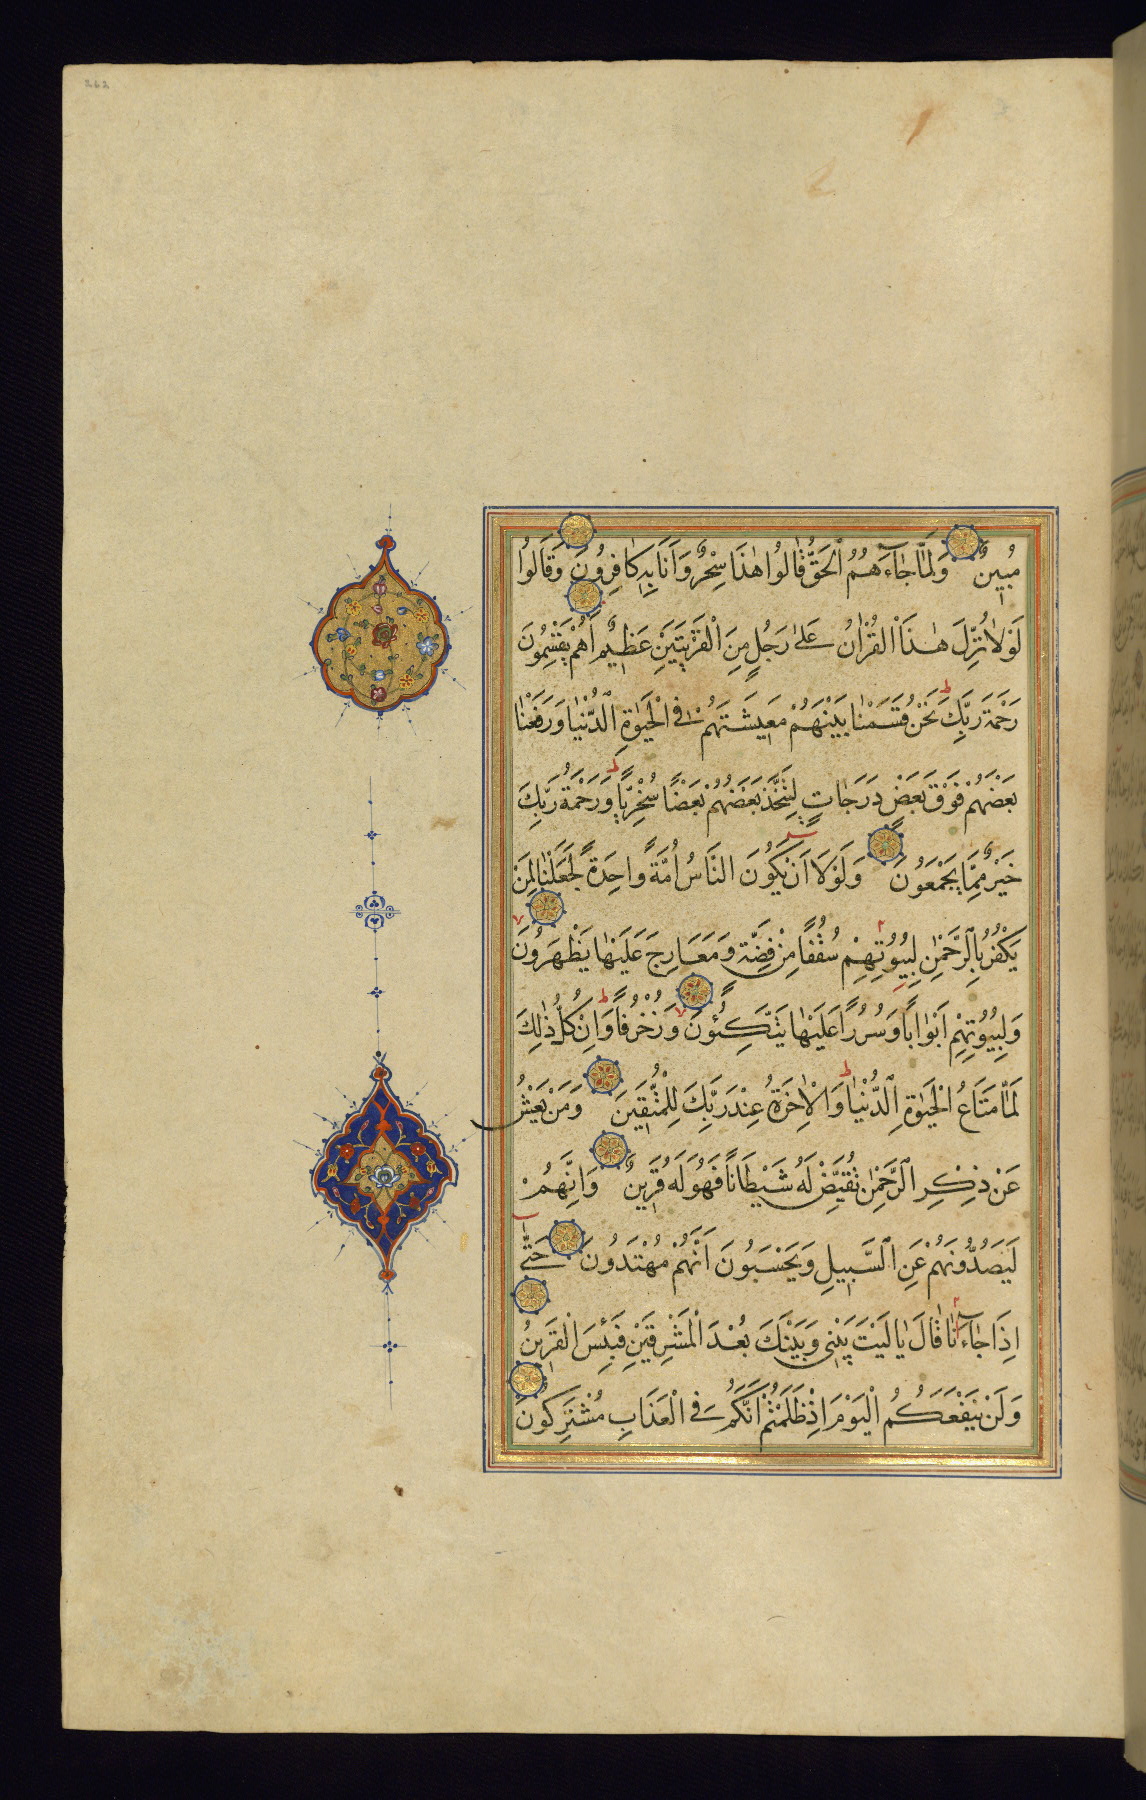 مُبِينٌ وَلَمَّا جَاءَهُمُ الْحَقُّ قَالُوا هٰذَا سِحْرٌ وَاِنَّا بِهِ كَافِرُونَ وَقَالُوا
لَوْلَا نُزِّلَ هٰذَا الْقُرْاٰنُ عَلٰى رَجُلٍ مِنَ الْقَرْيَتَيْنِ عَظِيمٍ اَهُمْ يَقْسِمُونَ
رَحْمَةَ رَبِّكَ نَحْنُ قَسَمْنَا بَيْنَهُمْ مَعِيشَتَهُمْ فِي الْحَيٰوةِ الدُّنْيَا وَرَفَعْنَا
بَعْضَهُمْ فَوْقَ بَعْضٍ دَرَجَاتٍ لِيَتَّخِذَ بَعْضُهُمْ بَعْضًا سُخْرِيًّا وَرَحْمَةُ رَبِّكَ
خَيْرٌ مِمَّا يَجْمَعُونَ وَلَوْلَا اَنْ يَكُونَ النَّاسُ اُمَّةً وَاحِدَةً لَجَعَلْنَا لِمَنْ
يَكْفُرُ بِالرَّحْمٰنِ لِبُيُوتِهِمْ سُقُفًا مِنْ فِضَّةٍ وَمَعَارِجَ عَلَيْهَا يَظْهَرُونَ
وَلِبُيُوتِهِمْ اَبْوَابًا وَسُرُرًا عَلَيْهَا يَتَّكِئُونَ وَزُخْرُفًا وَاِنْ كُلُّ ذٰلِكَ
لَمَّا مَتَاعُ الْحَيٰوةِ الدُّنْيَا وَالْاٰخِرَةُ عِنْدَ رَبِّكَ لِلْمُتَّقِينَ وَمَنْ يَعْشُ
عَنْ ذِكْرِ الرَّحْمٰنِ نُقَيِّضْ لَهُ شَيْطَانًا فَهُوَ لَهُ قَرِينٌ وَاِنَّهُمْ
لَيَصُدُّونَهُمْ عَنِ السَّبِيلِ وَيَحْسَبُونَ اَنَّهُمْ مُهْتَدُونَ حَتّٰى
اِذَا جَاءَنَا قَالَ يَا لَيْتَ بَيْنِي وَبَيْنَكَ بُعْدَ الْمَشْرِقَيْنِ فَبِئْسَ الْقَرِينُ
وَلَنْ يَنْفَعَكُمُ الْيَوْمَ اِذْ ظَلَمْتُمْ اَنَّكُمْ فِي الْعَذَابِ مُشْتَرِكُونَ